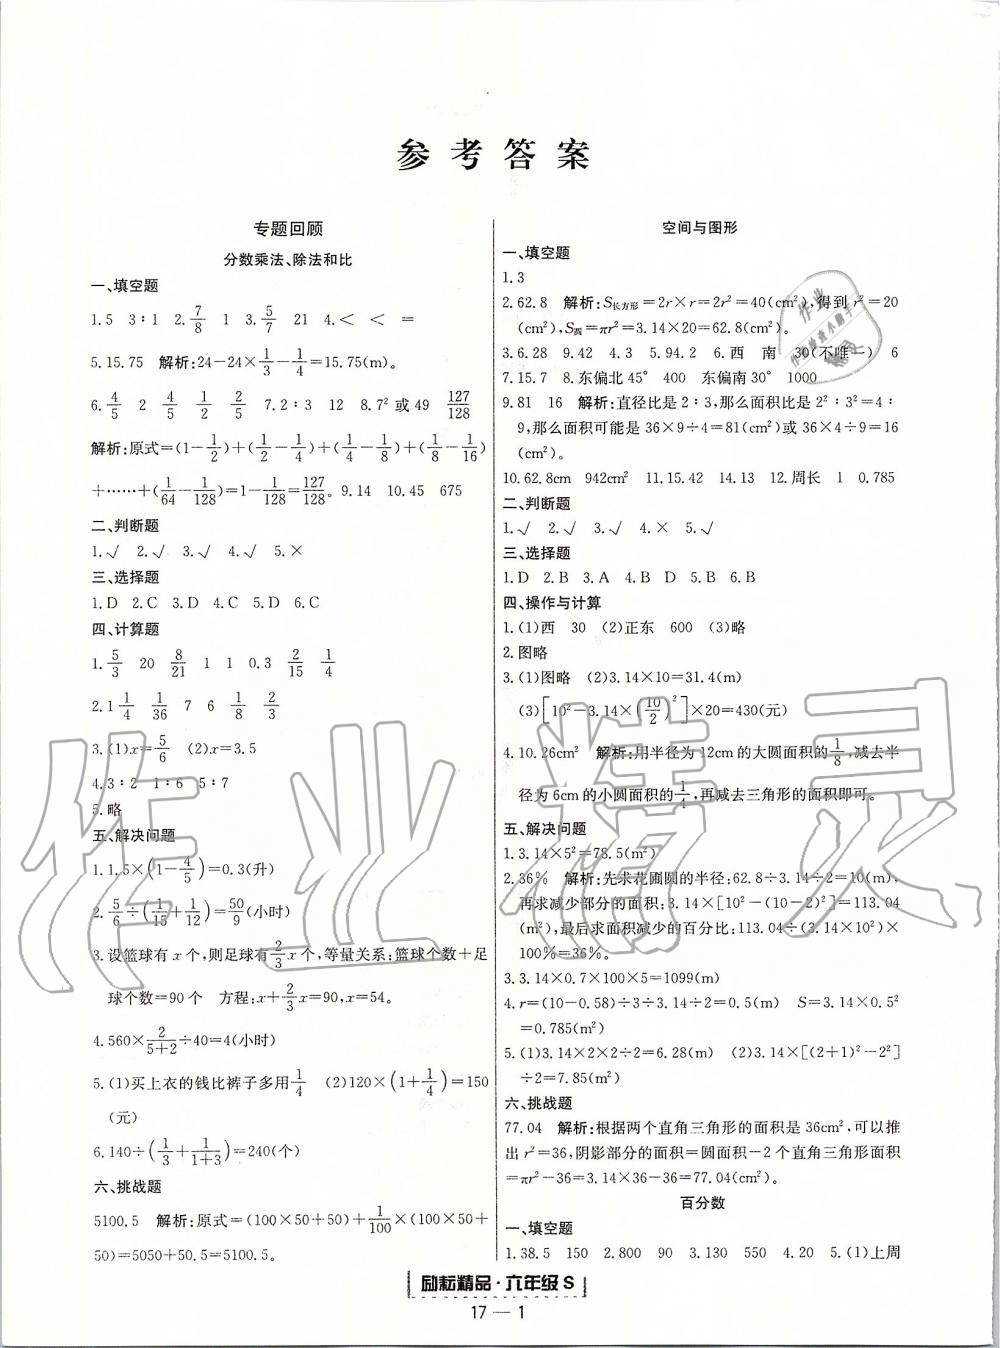 参考答案
专题回顾
分数乘法、除法和比
一、填空题
1.5 3∶1 2.7/8 1 3.5/7 21 4.＜ ＜ ＝
5.15.75 解析:24－24×1/3－1/4＝15.75(m)。
6.4/5 2 4/5 1/2 2/5 7.2∶3 12 8.7²或49 127/128
解析:原式＝(1－1/2)＋(1/2－1/4)＋(1/4－1/8)＋(1/8－1/16)
＋……＋(1/64－1/128)＝1－1/128＝127/128。9.14 10.45 675
二、判断题
1.√ 2.√ 3.√ 4.√ 5.×
三、选择题
1.D 2.C 3.D 4.C 5.D 6.C
四、计算题
1.5/3 20 8/21 1 1 0.3 2/15 1/4
2.1 1/4 1/36 7 6 1/8 2/3
3.(1)x＝5/6 (2)x＝3.5
4.3∶2 1∶6 5∶7
5.略
五、解决问题
1.1.5×(1－4/5)＝0.3(升)
2.5/6÷(1/15＋1/12)＝50/9(小时)
3.设篮球有x个,则足球有2/3x个,等量关系:篮球个数＋足
球个数＝90个 方程:x＋2/3x＝90,x＝54。
4.560×2/(5＋2)÷40＝4(小时)
5.(1)买上衣的钱比裤子多用1/4 (2)120×(1＋1/4)＝150
(元)
6.140÷(1/3＋1/(1＋3))＝240(个)
六、挑战题
5100.5 解析:原式＝(100×50＋50)＋1/100×(100×50＋
50)＝5050＋50.5＝5100.5。
空间与图形
一、填空题
1.3
2.62.8 解析:S长方形＝2r×r＝2r²＝40(cm²),得到r²＝20
(cm²),S圆＝πr²＝3.14×20＝62.8(cm²)。
3.6.28 9.42 4.3 5.94.2 6.西 南 30(不唯一) 6
7.15.7 8.东偏北45° 400 东偏南30° 1000
9.81 16 解析:直径比是2∶3,那么面积比是2²∶3²＝4∶
9,那么面积可能是36×9÷4＝81(cm²)或36×4÷9＝16
(cm²)。
10.62.8cm 942cm² 11.15.42 14.13 12.周长 1 0.785
二、判断题
1.√ 2.√ 3.√ 4.× 5.√
三、选择题
1.D 2.B 3.A 4.B D 5.B 6.B
四、操作与计算
1.(1)西 30 (2)正东 600 (3)略
2.图略
3.(1)图略 (2)3.14×10＝31.4(m)
(3)[10²－3.14×(10/2)²]×20＝430(元)
4.10.26cm² 解析:用半径为12cm的大圆面积的1/8,减去半
径为6cm的小圆面积的1/4,再减去三角形的面积即可。
五、解决问题
1.3.14×5²＝78.5(m²)
2.36% 解析:先求花圃圆的半径:62.8÷3.14÷2＝10(m),
再求减少部分的面积:3.14×[10²－(10－2)²]＝113.04
(m²),最后求面积减少的百分比:113.04÷(3.14×10²)×
100%＝36%。
3.3.14×0.7×100×5＝1099(m)
4.r＝(10－0.58)÷3÷3.14÷2＝0.5(m) S＝3.14×0.5²
＝0.785(m²)
5.(1)3.14×2×2÷2＝6.28(m) (2)3.14×[(2＋1)²－2²]
÷2＝7.85(m²)
六、挑战题
77.04 解析:根据两个直角三角形的面积是36cm²,可以推
出r²＝36,阴影部分的面积＝圆面积－2个直角三角形面积
＝πr²－36＝3.14×36－36＝77.04(cm²)。
百分数
一、填空题
1.38.5 150 2.800 90 3.130 550 4.20 5.(1)上周
励耘精品·六年级S
17—1
作业精灵
作业